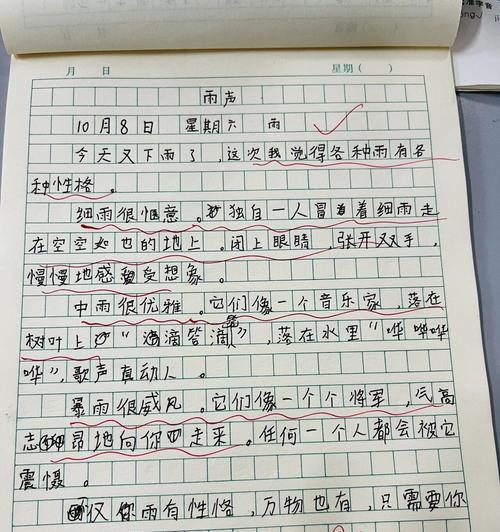 月 日 星期( )
雨声
10月8日 星期六 雨
今天又下雨了，这次我觉得各种雨有各
种性格。
细雨很惬意。独自一人冒着细雨走
在空空如也的地上。闭上眼睛，张开双手，
慢慢地感受想象。
中雨很优雅。它们像一个音乐家，落在
树叶上“滴滴答滴”，落在水里“哗哗哗
哗”，歌声真动人。
暴雨很威风。它们像一个个将军，气高
志昂地向你走来。任何一个人都会被它
震慑。
仅你雨有性格，万物也有，只需要你